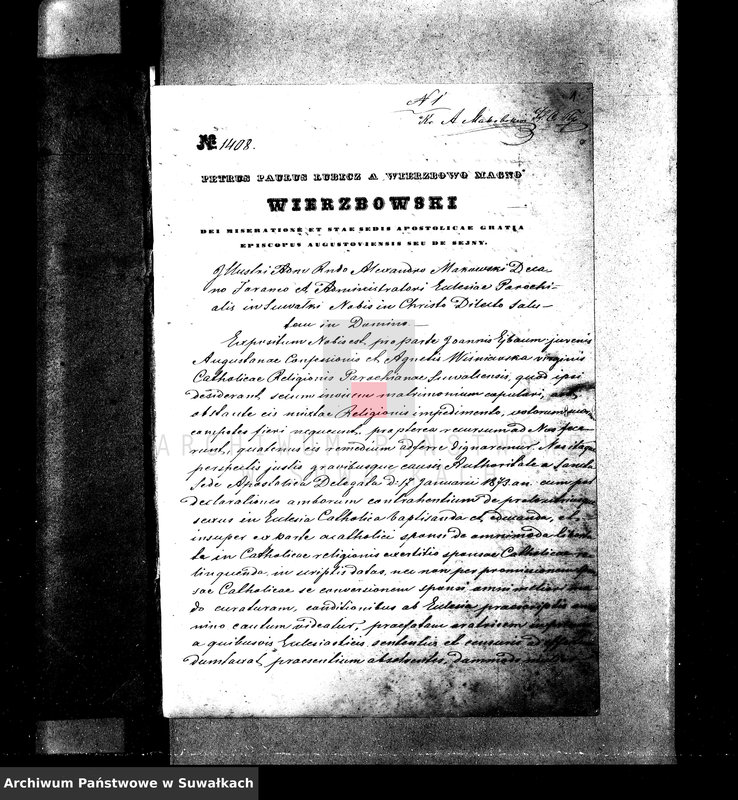 N 1
№ 1408.
PETRUS PAULUS LUBICZ A WIERZBOWO MAGNO
WIERZBOWSKI
DEI MISERATIONE ET STAE SEDIS APOSTOLICAE GRATIA
EPISCOPUS AUGUSTOVIENSIS SEU DE SEJNY.
Illustri Rndo Alexandro Makowski Deca-
no Foraneo et Administratori Ecclesiae Parochi-
alis in Suwałki Nobis in Christo Dilecto Salu-
tem in Domino.—
Expositum Nobis est, pro parte Joannis juvenis
Augustanae Confessionis et Agnetis Wiśniewska virginis
Catholicae Religionis Parochianae Suwalcensis, quod ipsi
desiderant, secum invicem matrimonium copulari, ast
obstante eis mixtae Religionis impedimento, votorum
compotes fieri nequeunt, propterea recursum ad Nos fece-
runt, quatenus eis remedium adferre dignaremur. Nos itaque
perspectis justis gravibusque causis Authoritate a Sancta
Sede Apostolica Delegata d. 17 Januarii 1873 an. cum per
declarationes amborum contrahentium de prole utriusque
sexus in Ecclesia Catholica baptisanda et educanda, et
insuper ex parte acatholici sponsi de omnimoda liberta-
te in Catholicae religionis exercitio sponsae Catholicae re-
linquenda, in scriptis datas, nec non per promissionem spon-
sae Catholicae se conversionem sponsi omni
do curaturam, conditionibus ab Ecclesia praescriptis om-
nino cautum videatur, praefatam oratricem
a quibusvis Ecclesiasticis sententiis et censuris ad effectum
dumtaxat praesentium absolventes, dummodo
ARCHIWUM PAŃSTWOWE
Archiwum Państwowe w Suwałkach